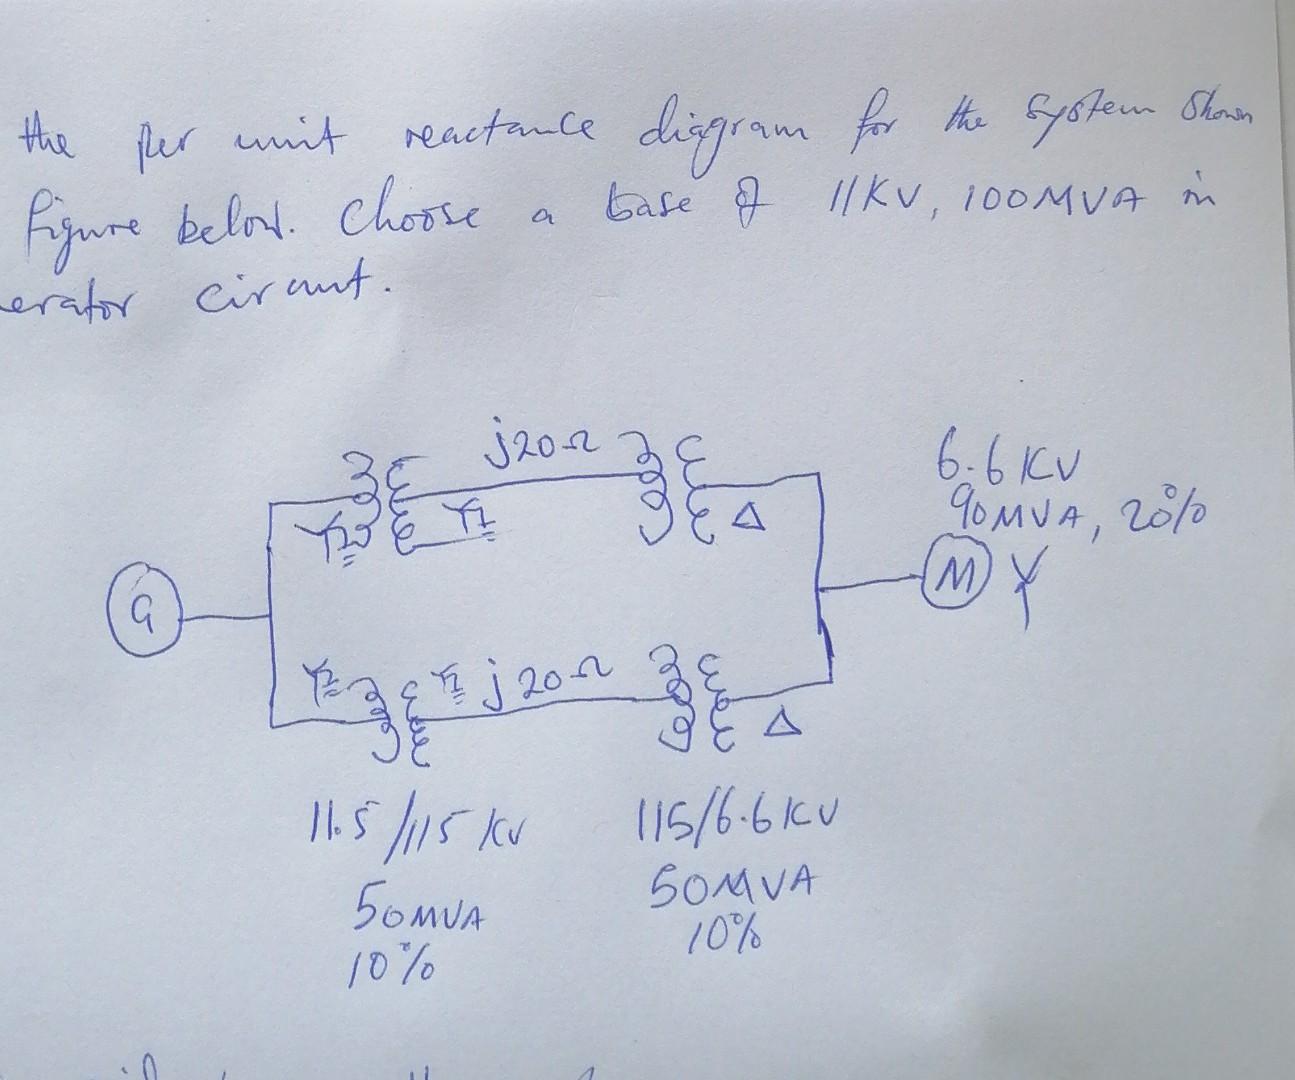 the per unit reactance diagram for the system shown
figure below. Choose a base of 11KV, 100MVA in
erator circuit.
j20Ω
6.6 KV
90MVA, 20%
Δ
G
M Y
j20Ω
Δ
11.5/115 KV
115/6.6KV
50MVA
50MVA
10%
10%